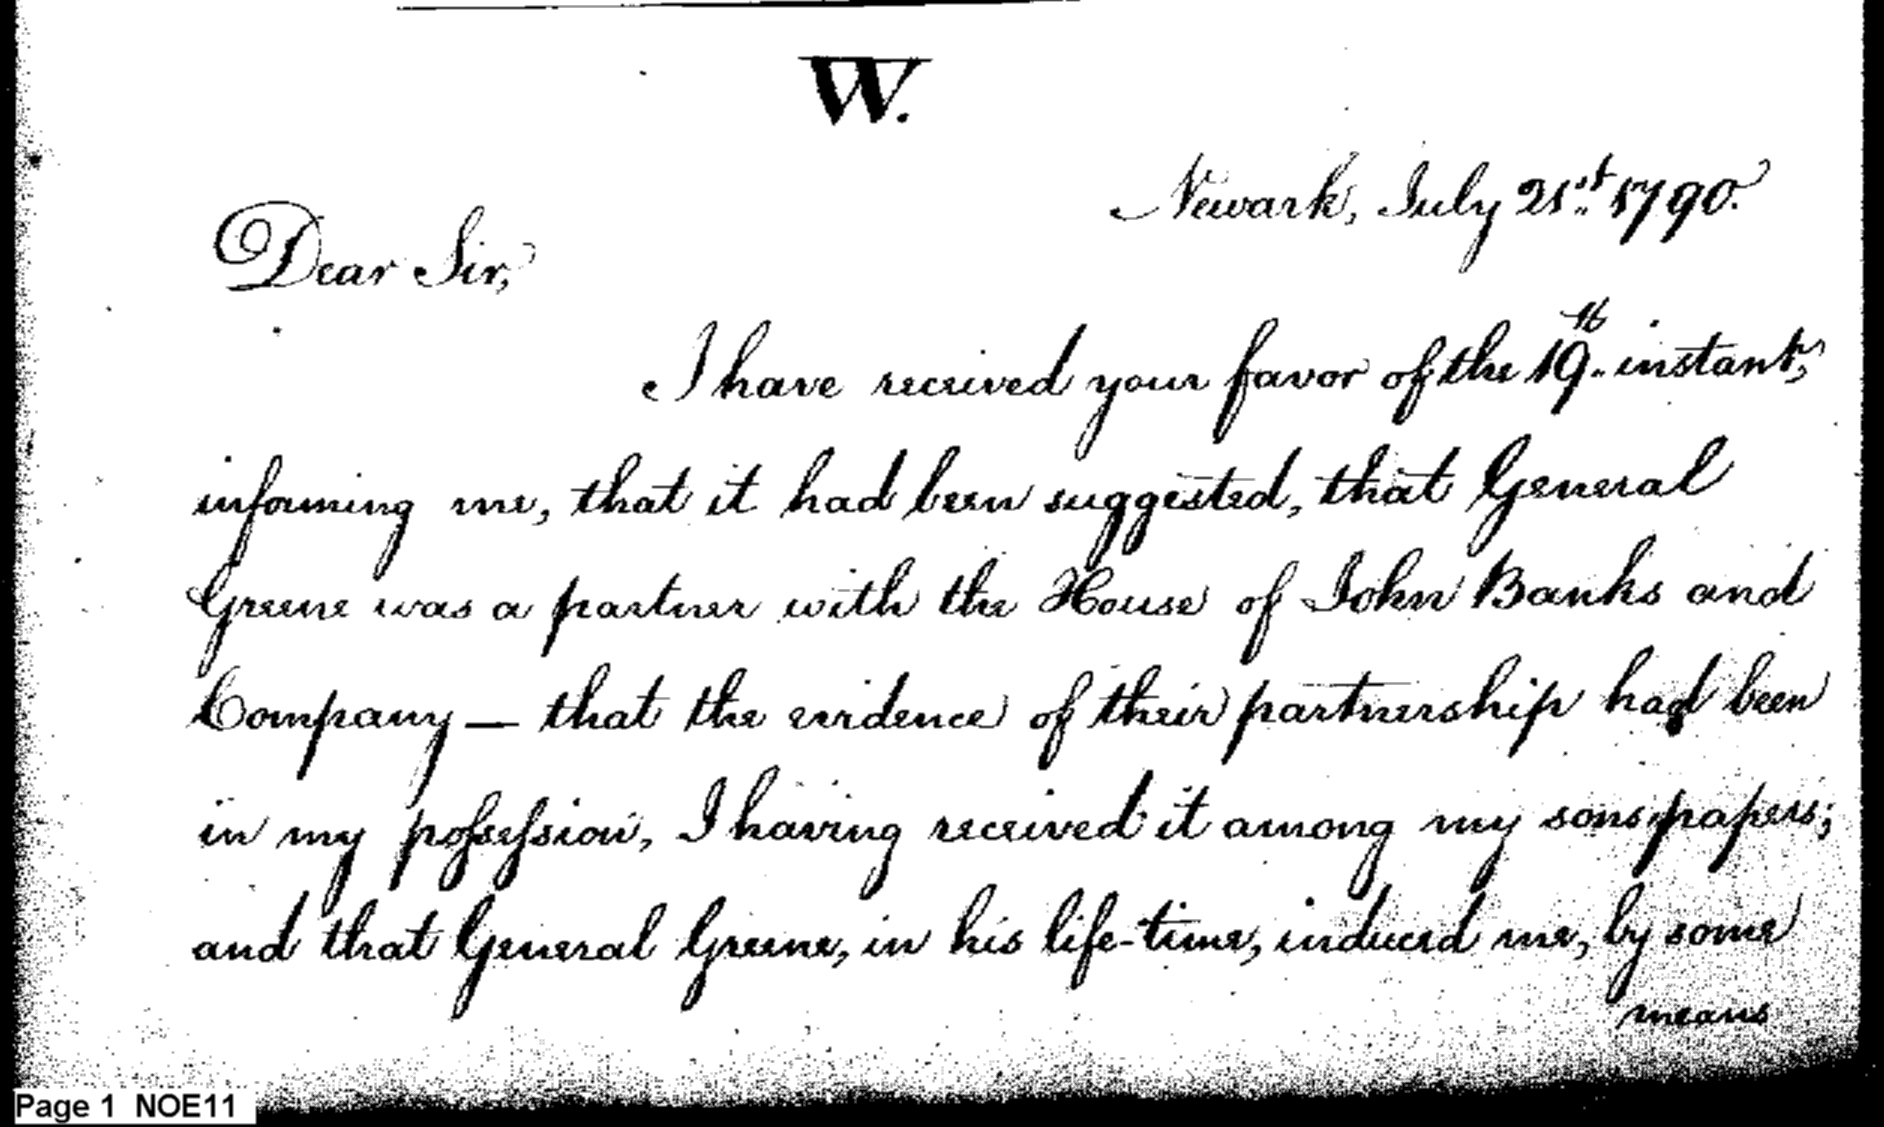 W.
Newark, July 21st. 1790.
Dear Sir,
I have received your favor of the 19th. instant,
informing me, that it had been suggested, that General
Greene was a partner with the House of John Banks and
Company — that the evidence of their partnership had been
in my poſseſsion, I having received it among my sons papers;
and that General Greene, in his life-time, induced me, by some
means
Page 1 NOE11